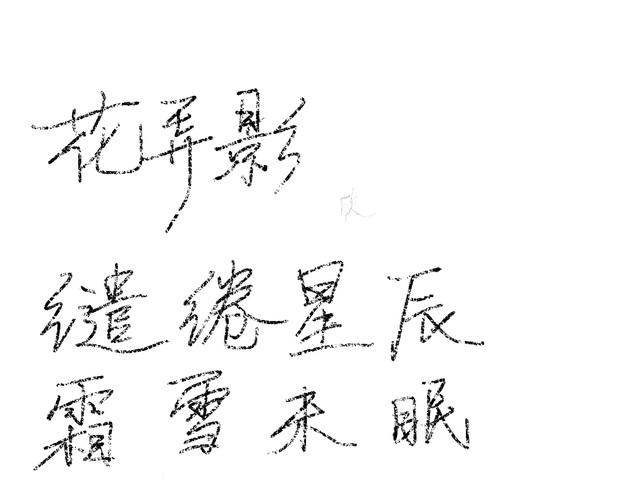 花弄影
缱绻星辰
霜雪未眠